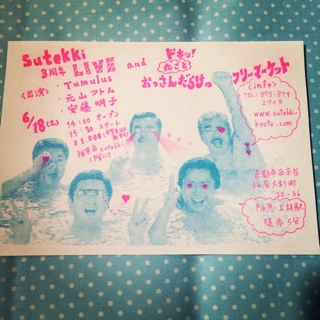 sutekki
3周年 LIVE
〈出演〉・Tumulus
・元山ツトム
・安藤明子
6/18(土)
14:00 オープン
14:30 スタート
¥1,000
and
ドキッ!
丸ごと
おっさんだらけの
フリーマーケット
〈info〉
TEL:075-874-
2905
www.sutekki-
kyoto.com
京都市西京区
20-36
徒歩5分